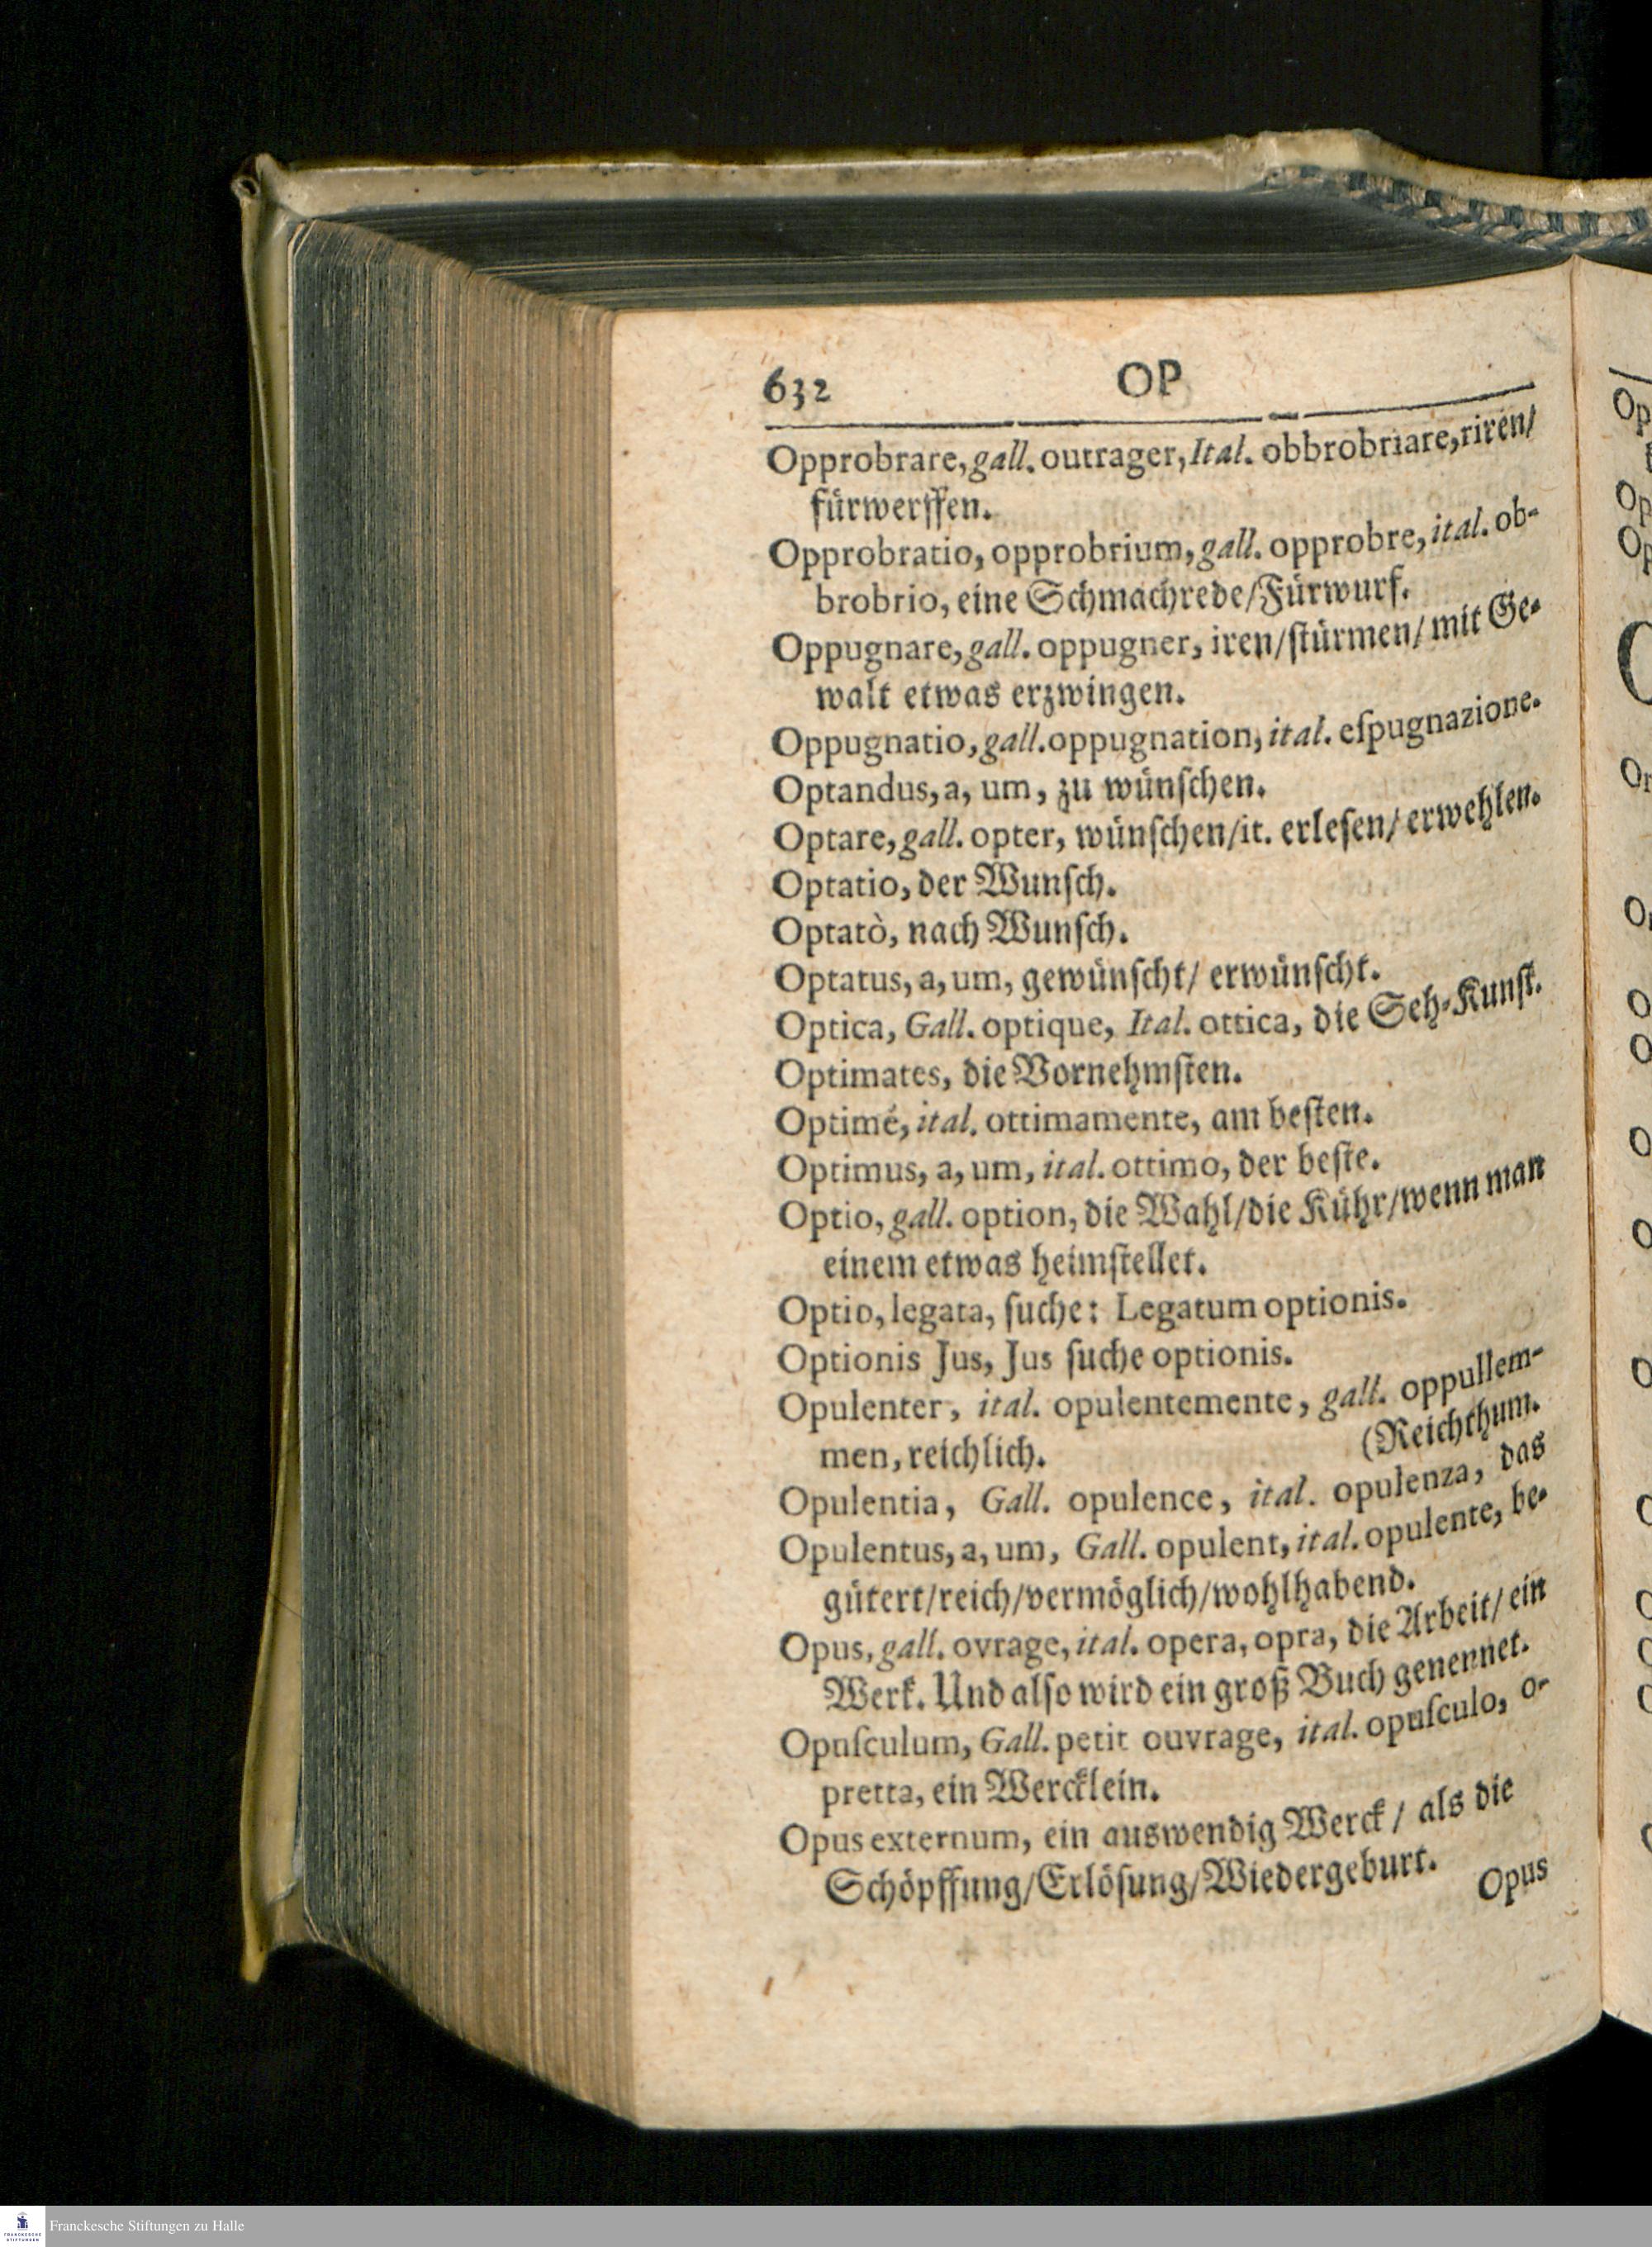 632 OP
Opprobrare, gall. outrager, Ital. obbrobriare, riren/
fürwerffen.
Opprobratio, opprobrium, gall. opprobre, ital. ob-
brobrio, eine Schmachrede/Fürwurf.
Oppugnare, gall. oppugner, iren/ſtürmen/mit Ge-
walt etwas erzwingen.
Oppugnatio, gall. oppugnation, ital. eſpugnazione.
Optandus, a, um, zu wünſchen.
Optare, gall. opter, wünſchen/it. erleſen/erwehlen.
Optatio, der Wunſch.
Optatò, nach Wunſch.
Optatus, a, um, gewünſcht/ erwünſcht.
Optica, Gall. optique, Ital. ottica, die Seh-Kunſt.
Optimates, die Vornehmſten.
Optimé, ital. ottimamente, am beſten.
Optimus, a, um, ital. ottimo, der beſte.
Optio, gall. option, die Wahl/die Kühr/wenn man
einem etwas heimſtellet.
Optio, legata, ſuche: Legatum optionis.
Optionis Jus, Jus ſuche optionis.
Opulenter, ital. opulentemente, gall. oppullem-
men, reichlich. (Reichthum.
Opulentia, Gall. opulence, ital. opulenza, das
Opulentus, a, um, Gall. opulent, ital. opulente, be-
gütert/reich/vermöglich/wohlhabend.
Opus, gall. ovrage, ital. opera, opra, die Arbeit/ein
Werk. Und alſo wird ein groß Buch genennet.
Opuſculum, Gall. petit ouvrage, ital. opuſculo, o-
pretta, ein Wercklein.
Opus externum, ein auswendig Werck/ als die
Schöpffung/Erlöſung/Wiedergeburt.
Opus
Franckesche Stiftungen zu Halle